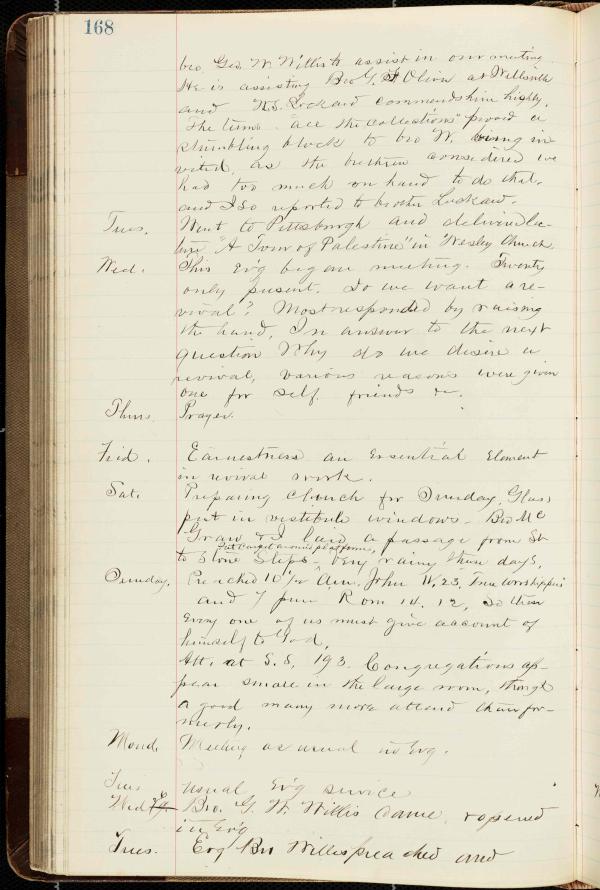 168
bro. Geo. W. Willis to assist in our meeting.
He is assisting Bro G. Olivir at Willisville
and commends him highly.
The time "all the collections" proved a
stumbling block to bro W. being in
vited, as the brethren considered we
had too much on hand to do that,
and I so reported to brother Luckard.
Tues. Went to Pittsburgh and deliverd lec-
ture "A Tour of Palestine" in Wesley Church
Wed. This Ev'g began meeting. Twenty
only present. Do we want a re-
vival? Most responded by raising
the hand, In answer to the next
question Why do we desire a
revival, various reasons were given
one for self friends &c.
Thurs Prayer.
Frid. Earnestness an Essential Element
in revival work.
Sat. Preparing Church for Sunday. Glass
put in vestibule windows - Bro Mc
Graw & I laid a passage from St
to Stone Steps - Very rainy these days,
Put carpet around platforms,
Sunday. Preached 10 1/2 am. John IV, 23, True worshippers
and 7 pm Rom 14. 12, So then
every one of us must give account of
himself to God,
Att. at S.S, 193. Congregations ap-
pear small in the large room, though
a good many more attend than for-
merly.
Mond. Meeting as usual in Evg.
Tues usual Ev'g service
Wed Bro. G. W. Willis came, & opened
in Evg
Tues. Evg Bro Willis preached and